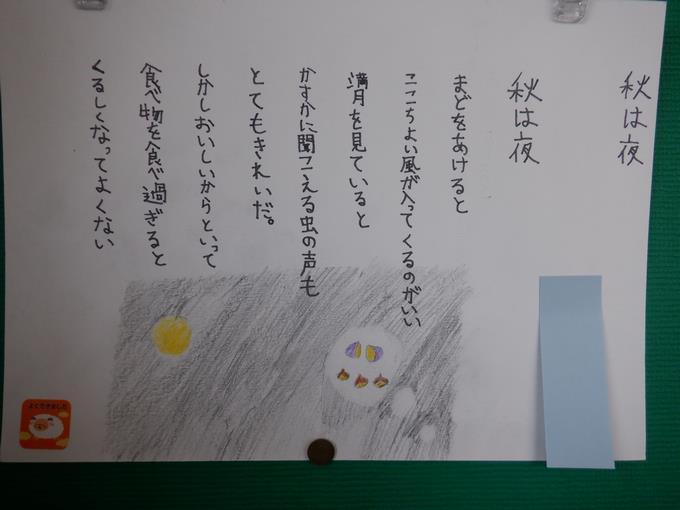 秋は夜
秋は夜
まどをあけると
こころよい風が入ってくるのがいい
満月を見ていると
かすかに聞こえる虫の声も
とてもきれいだ。
しかしおいしいからといって
食べ物を食べ過ぎると
くるしくなってよくない
よくできました